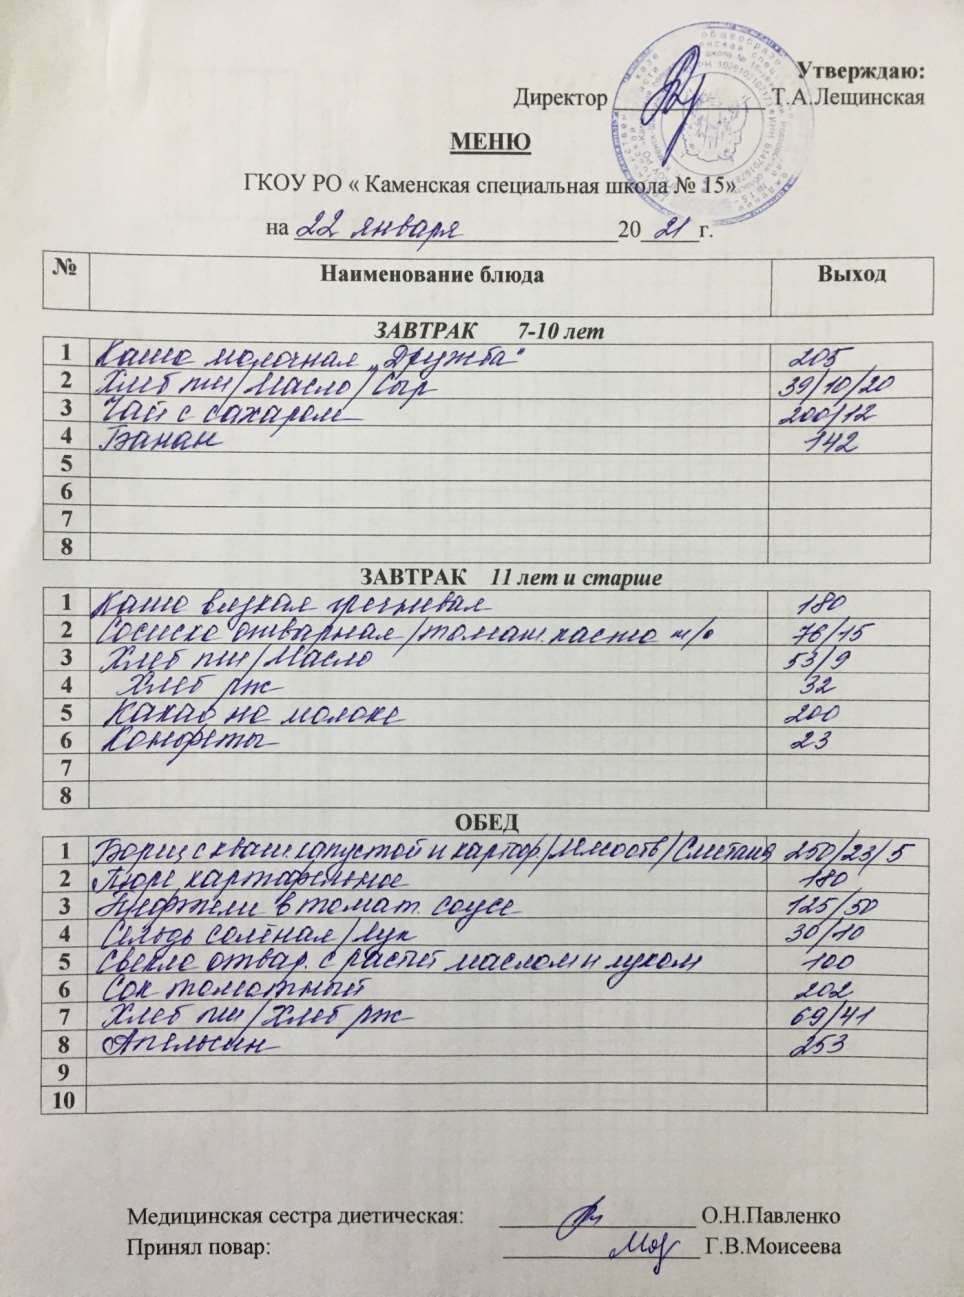 Утверждаю:
Директор Т.А.Лещинская
МЕНЮ
ГКОУ РО « Каменская специальная школа № 15»
на 22 января 2021 г.
№ Наименование блюда Выход
ЗАВТРАК 7-10 лет
1 Каша молочная „Дружба" 205
2 Хлеб пш/Масло/Сыр 39/10/20
3 Чай с сахаром 200/12
4 Банан 142
5
6
7
8
ЗАВТРАК 11 лет и старше
1 Каша вязкая гречневая 180
2 Сосиска отварная/томат. паста п/о 76/15
3 Хлеб пш/Масло 53/9
4 Хлеб рж 32
5 Какао на молоке 200
6 Конфеты 23
7
8
ОБЕД
1 Борщ с кваш. капустой и картоф/Мясо/Сметана 250/23/5
2 Пюре картофельное 180
3 в томат. соусе 125/50
4 Сельдь солёная/лук 30/10
5 Свекла отвар. с растит маслом и луком 100
6 Сок томатный 202
7 Хлеб пш/Хлеб рж 69/41
8 Апельсин 253
9
10
Медицинская сестра диетическая: О.Н.Павленко
Принял повар: Г.В.Моисеева